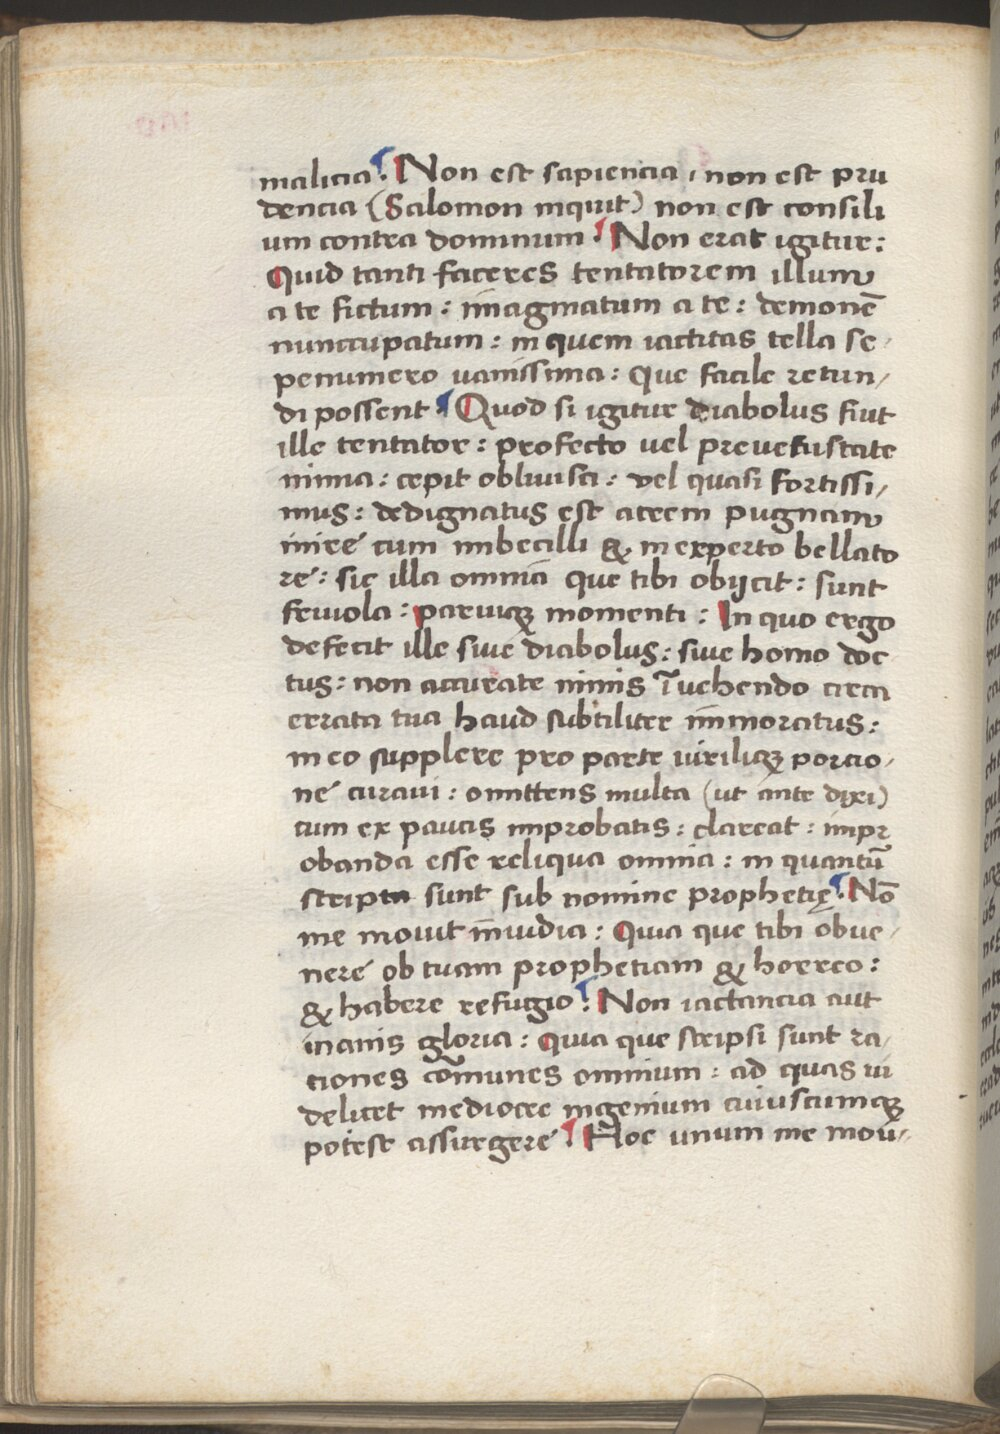 malicia. Non est sapiencia, non est pru
dencia (Salomon inquit) non est consili
um contra dominum. Non erat igitur:
Quid tanti faceres tentatorem illum
a te fictum: imaginatum a te: demonē
nunccupatum: in quem iactitas tella se,
penumero vanissima: Que facile retun,
di possent. Quod si igitur diabolus fiut
ille tentator: profecto uel pre uetustate
nimia: cepit obliuisci: vel quasi fortissi,
mus: dedignatus est atrem pugnam
inire cum imbecilli & inexperto bellato
re: sic illa omnia que tibi obijcit: sunt
friuola: paruiqꝫ momenti: In quo ergo
defecit ille siue diabolus: siue homo doc
tus: non accurate nimis īuehendo circa
errata tua haud subtiliter immoratus:
in eo supplere pro parte uiriliqꝫ porcio,
ne curaui: omittens multa (ut ante dixi)
cum ex paucis improbatis: clareat: impr
obanda esse reliqua omnia: in quantū
scripta sunt sub nomine prophetię. Nō
me mouit inuidia: Quia que tibi obue,
nere ob tuam prophetiam & horreo:
& habere refugio. Non iactancia aut
inanis gloria: quia que scripsi sunt ra,
ciones cōmunes omnium: ad quas ui
delicet mediocre ingenium cuiuscumqꝫ
potest assurgere. Hoc unum me moui,